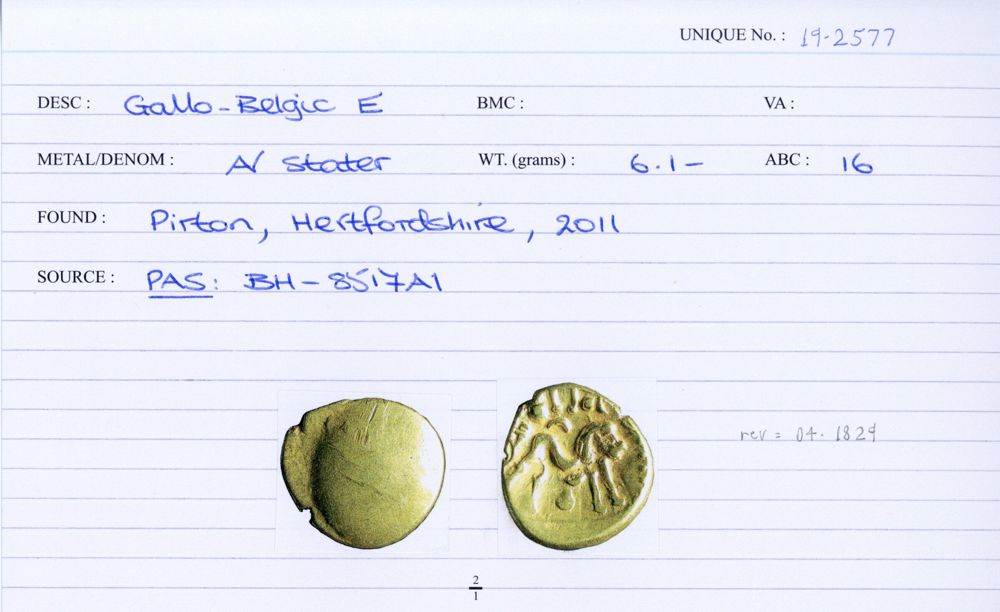 UNIQUE No. : 19-2577
DESC : Gallo-Belgic E BMC : VA :
METAL/DENOM : A/ Stater WT. (grams) : 6.1- ABC : 16
FOUND : Pirton, Hertfordshire, 2011
SOURCE : PAS: BH-8517A1
rev = 04.1829
2
1